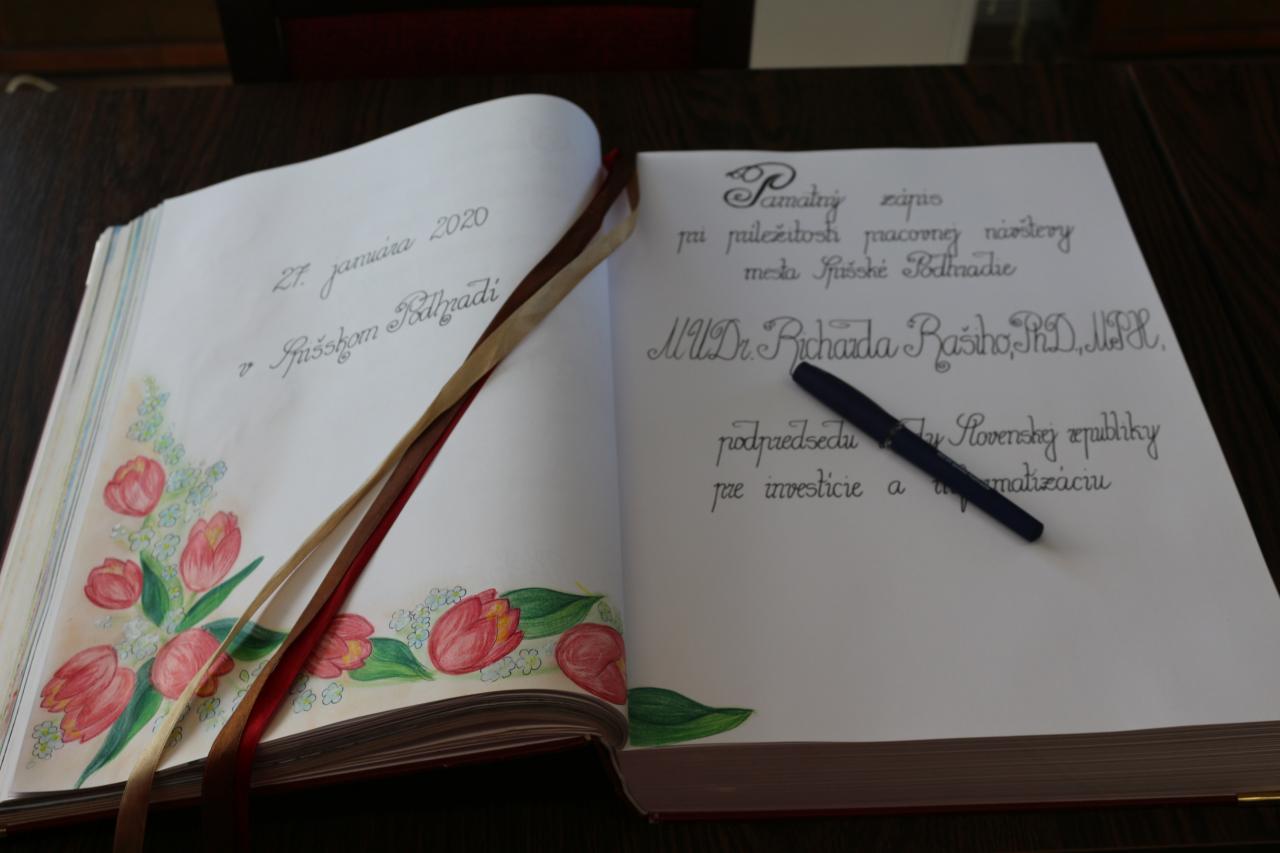 27. januára 2020
v Spišskom Podhradí
Pamätný zápis
pri príležitosti pracovnej návštevy
mesta Spišské Podhradie
MUDr. Richarda Rašiho, PhD., MPH,
podpredsedu vlády Slovenskej republiky
pre investície a informatizáciu